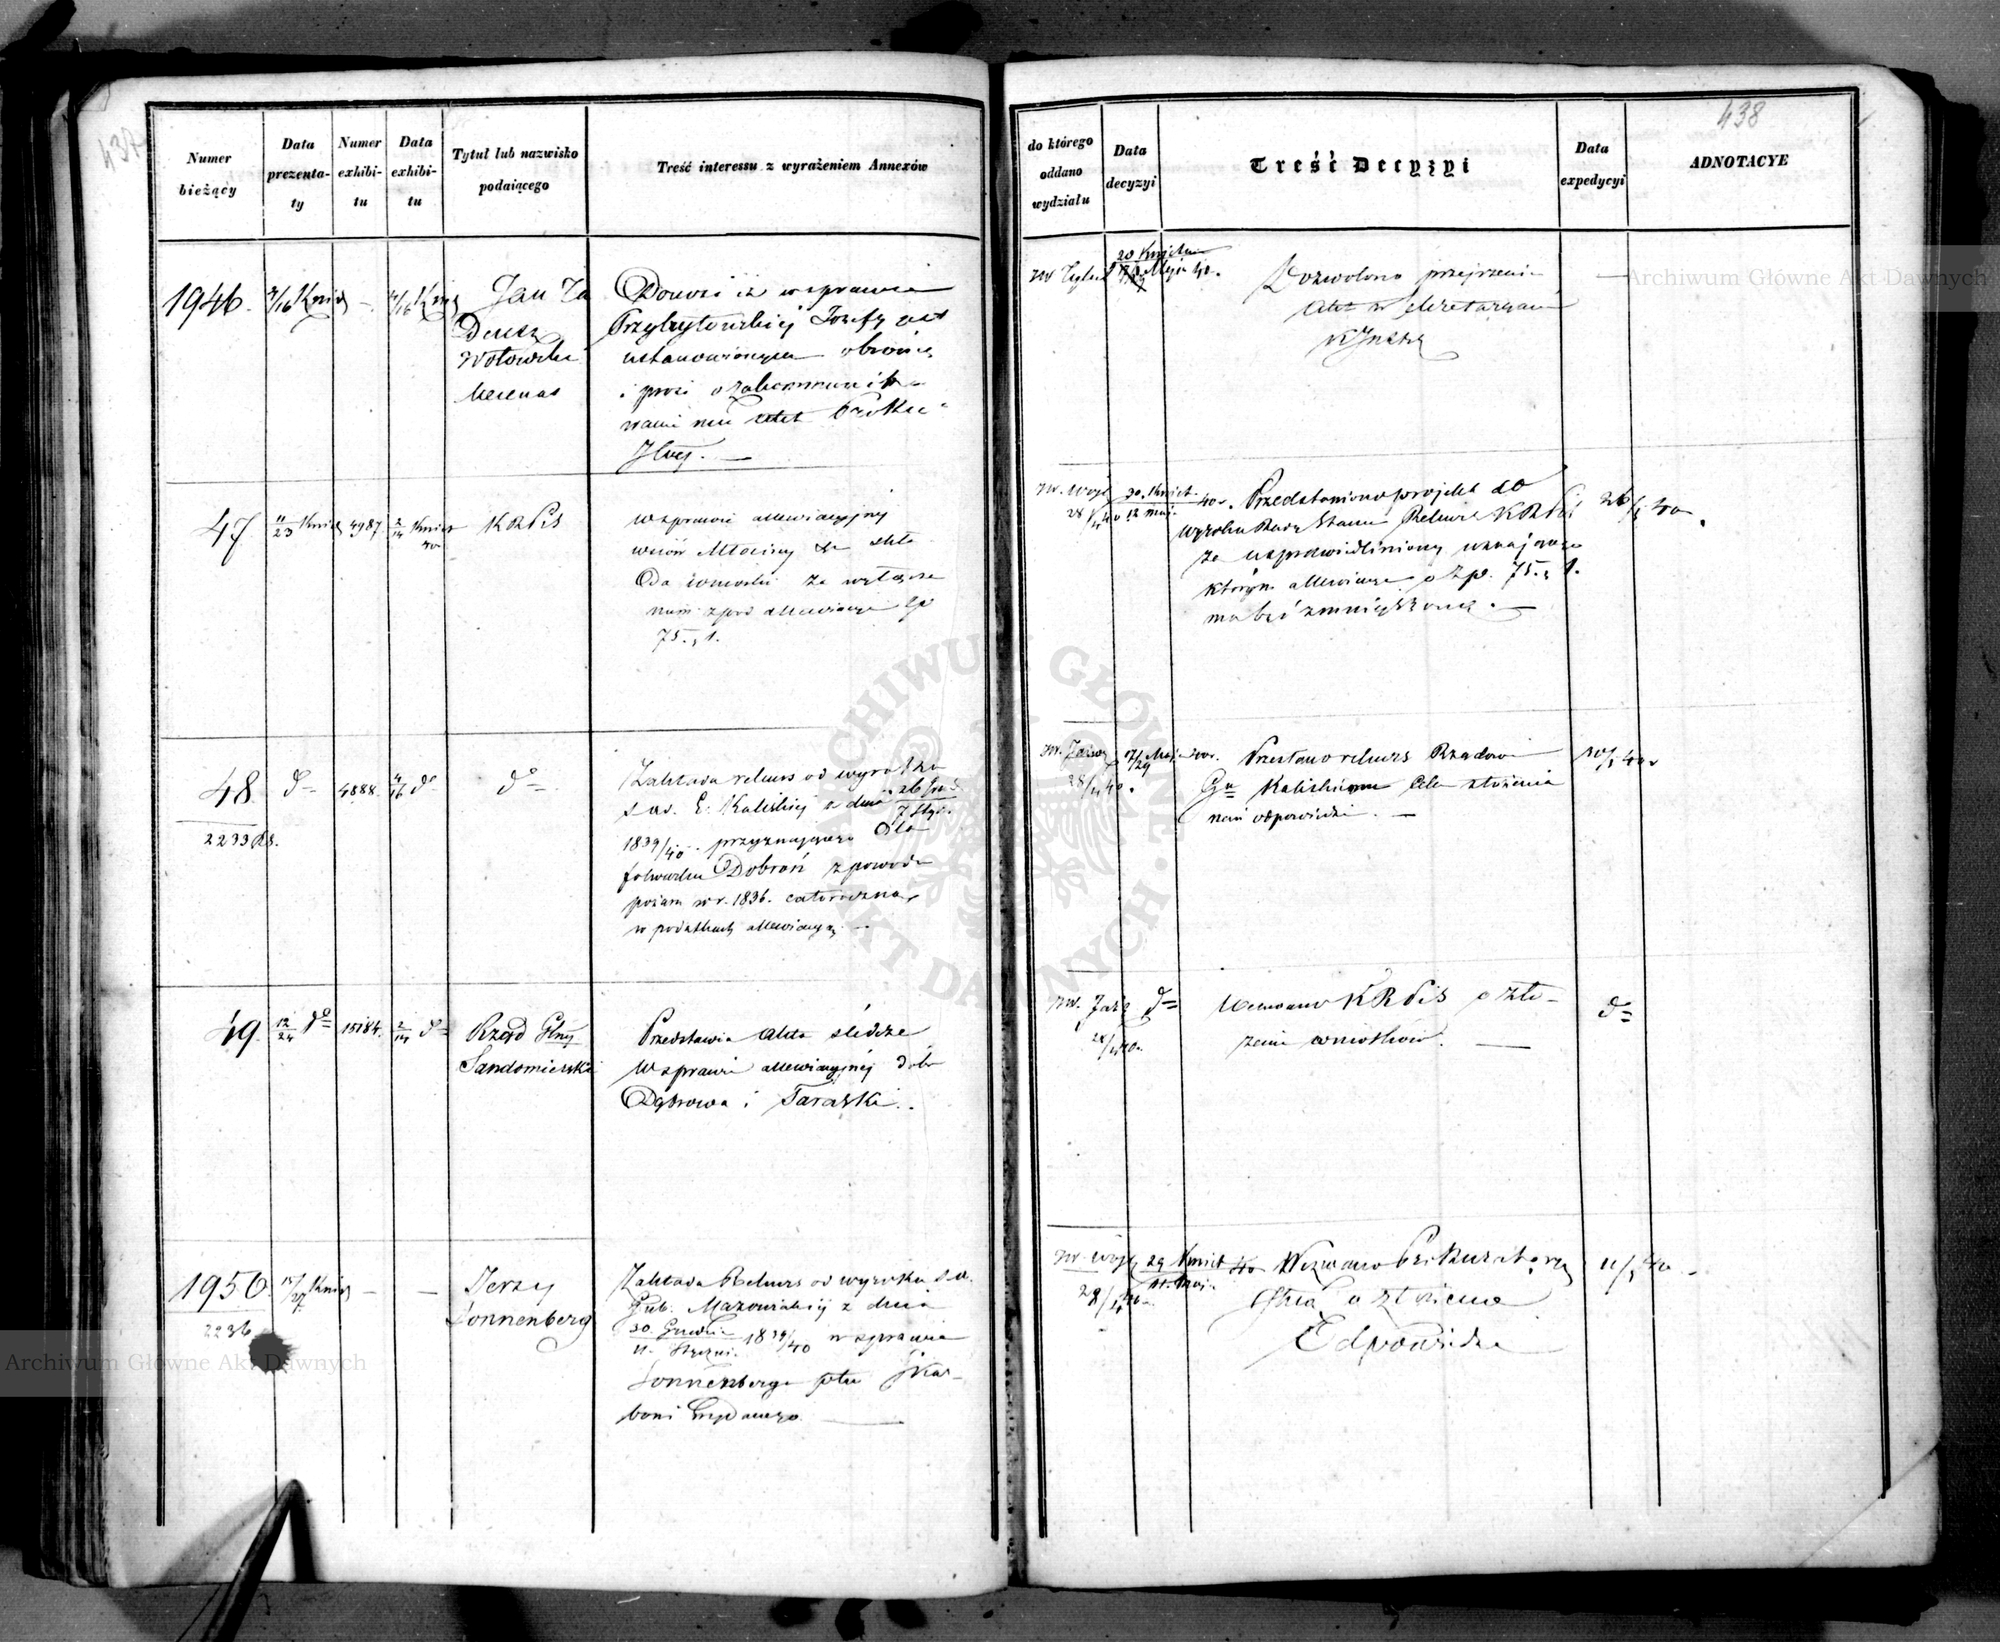 437
Numer
bieżący
Data
prezenta-
ty
Numer
exhibi-
tu
Data
exhibi-
tu
Tytuł lub nazwisko
podaiącego
Treść interessu z wyrażeniem Annexów
1946.
4/16 Kwie
–
4/16 Kwie
Jan Ka
Wołowski
Mecenas
Donosi iż w sprawie
Przybytowskiej Józefy jest
ustanowionym obrońcą
i prosi o zakommuniko-
wanie mu akt
47
11/23 Kwie
4987.
2/14 Kwiet
40
KRPiS
W sprawie allewiacyjnej
wsiów Młociny
wnioski za
allewiacyę Zp
75. 1.
48.
2233 RS.
do
4888.
4/16 do
do
Zakłada rekurs od wyroku
Sas. E. Kaliskiej z dnia 26 Gru:
7 Stycz:
1839/40. przyznającego dla
folwarku Dobroń z powodu
pożaru w r. 1836. całoroczną
w podatkach allewiacyą. –
49.
12/24 do
15184.
2/14 do
Rząd Gbny
Sandomierski
Przedstawia Akta śledcze
W sprawie allewiacyjnej dóbr
Dąbrowa i Taraski.
1950.
2236
15/27 Kwie
–
–
Jerzy
Sonnenberg
Zakłada Rekurs od wyroku Sa.
Gub. Mazowieckiej z dnia
30 Grudnia
11. Styczni. 1839/40 w sprawie
Sonnenberga ptko Skar-
bowi wydanego. –
438
do którego
oddano
wydziału
Data
decyzyi
Treść Decyzyi
Data
expedycyi
ADNOTACYE
20 Kwietnia
Maja 40.
Dozwolono przejrzenie
Akt w Sekretaryacie
–
W. Wojd
28/4 40
30. Kwiet.
12 Maja 40.
Przedstawiono projekt do
Wyroku Rady Stanu Rekurs KRPiS
za usprawiedliwiony uznającego
którym allewiacya o Zp. 75. 1.
ma być zmniejszoną. –
26/5 40
28/4 40.
17/29 Maja 40.
Przesłano rekurs Rządowi
Gu Kaliskiemu celem złożenia
nań odpowiedzi. –
10/6 40
28/4 40.
do
Wezwano KRPiS o zło-
żenie wniosków. –
do
W. Wojd
28/4 40.
29 Kwiet
11. Maja 40
Wezwano Prokuratoryą
o złożenie
Odpowiedzi
11/5 40
Archiwum Główne Akt Dawnych
ARCHIWUM GŁÓWNE AKT DAWNYCH
Archiwum Główne Akt Dawnych